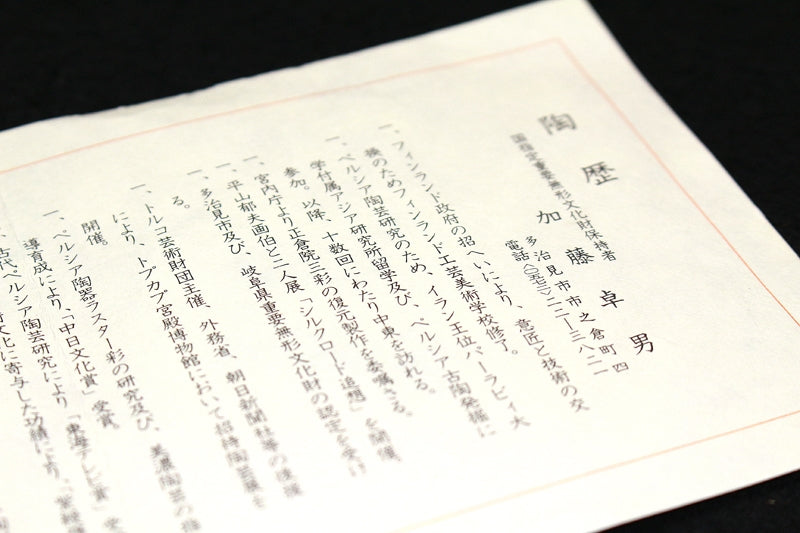 陶歴
国指定重要無形文化財保持者
加藤卓男
多治見市市之倉町四
電話(〇五七二)二二―三八二一
一、フィンランド政府の招へいにより、意匠と技術の交
換のためフィンランド工芸美術学校修了。
一、ペルシア陶芸研究のため、イラン王位パーラビィ大
学付属アジア研究所留学及び、ペルシア古陶発掘に
参加。以降、十数回にわたり中東を訪れる。
一、宮内庁より正倉院三彩の復元製作を委嘱さる。
一、平山郁夫画伯と二人展「シルクロード追想」を開催。
一、多治見市及び、岐阜県重要無形文化財の認定を受け
る。
一、トルコ芸術財団主催、外務省、朝日新聞社等の後援
により、トプカプ宮殿博物館において招待陶芸展を
開催。
一、ペルシア陶器ラスター彩の研究及び、美濃陶芸の指
導育成により、「中日文化賞」受賞。
古代ペルシア陶芸研究により「東海テレビ賞」受
文化に寄与した功績により、「紫綬